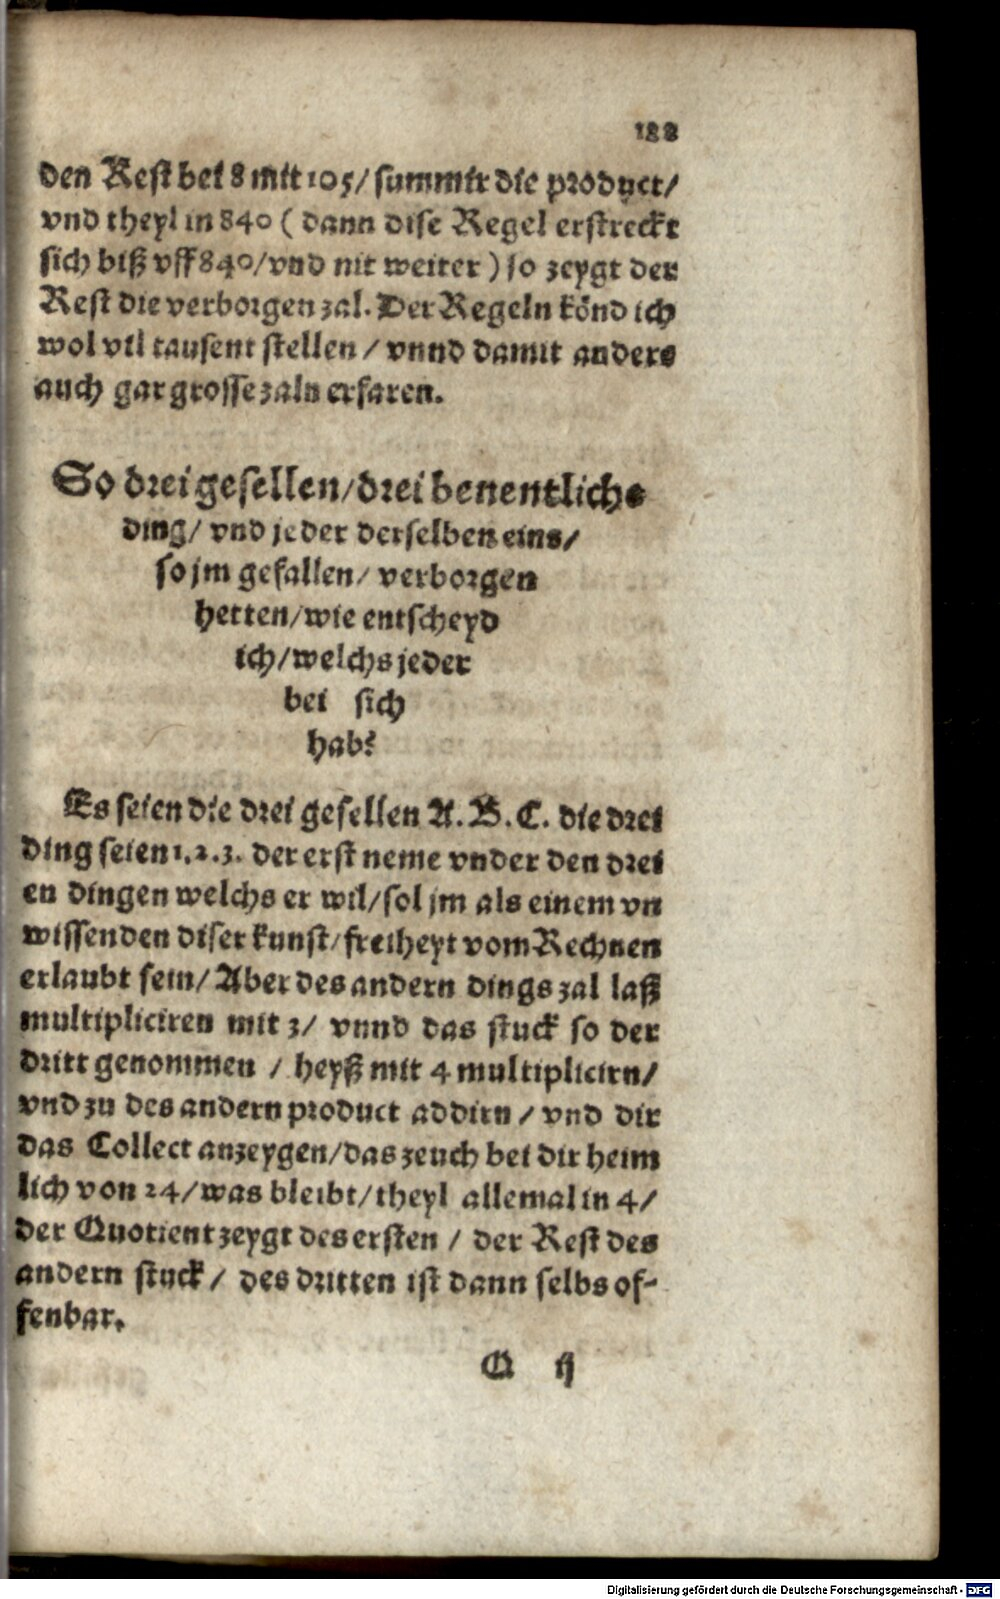 188
den Rest bei 8 mit 105/ summir die product/
vnd theyl in 840 ( dann dise Regel erstreckt
sich biß vff 840/vnd nit weiter ) so zeygt der
Rest die verborgen zal. Der Regeln könd ich
wol vil tausent stellen / vnnd damit anders
auch gar grosse zaln erfaren.
So drei gesellen/drei benentliche
ding/ vnd jeder derselben eins/
so jm gefallen/ verborgen
hetten/wie entscheyd
ich/welchs jeder
bei sich
hab?
Es seien die drei gesellen A. B. C. die drei
ding seien 1.2.3. der erst neme vnder den drei
en dingen welchs er wil/sol jm als einem vn
wissenden diser kunst/freiheyt vom Rechnen
erlaubt sein/ Aber des andern dings zal laß
multipliciren mit 3/ vnnd das stuck so der
dritt genommen / heyß mit 4 multiplicirn/
vnd zu des andern product addirn / vnd dir
das Collect anzeygen/das zeuch bei dir heim
lich von 24/was bleibt/theyl allemal in 4/
der Quotient zeygt des ersten / der Rest des
andern stuck / des dritten ist dann selbs of-
fenbar.
Q ij
Digitalisierung gefördert durch die Deutsche Forschungsgemeinschaft - DFG